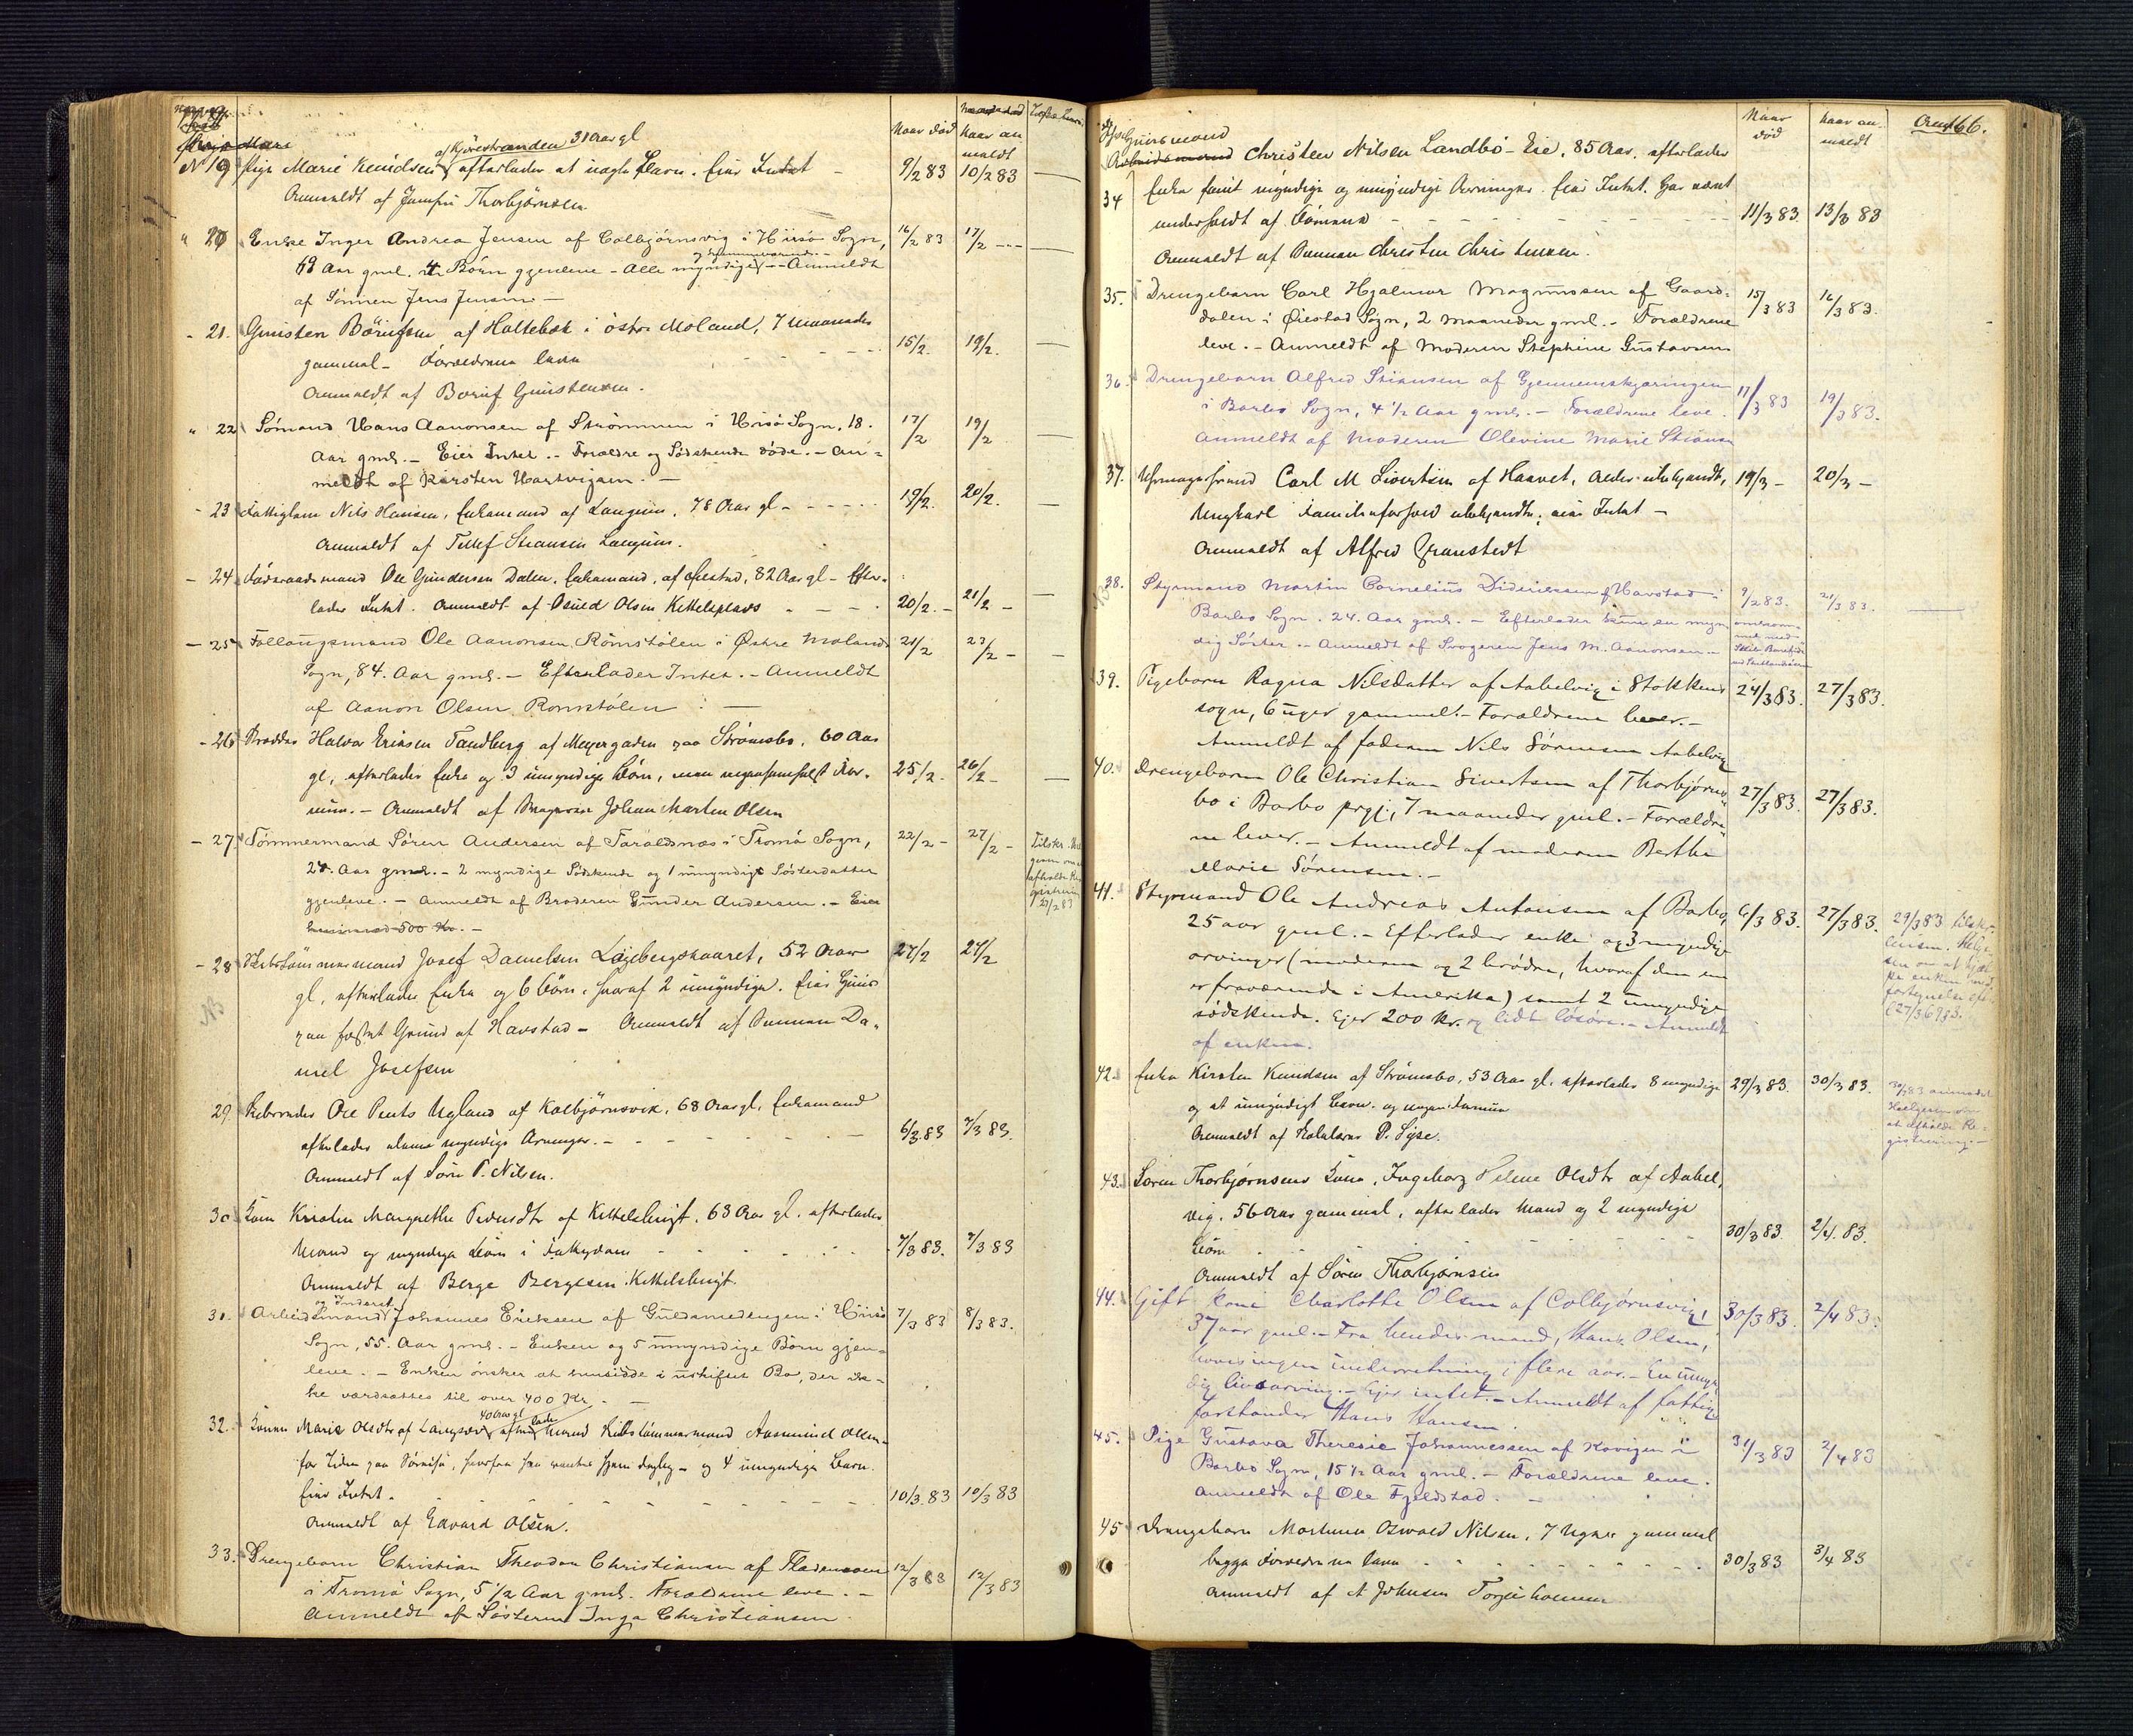 Naar død
naar an
meldt
af Kjørestranden 31 Aar gl
No 19 Pige Marie Knudsen efterlader et uægte Barn. Eier Intet - 9/2 83 10/2 83
Anmeldt af Jomfru Thorbjørnsen
" 20 Enke Inger Andrea Jensen af Colbjørnsvig i Hisø Sogn, 16/2 83 17/2
69 Aar gml. 4 Børn gjenleve - Alle myndige - Anmeldt
af Sønnen Jens Jensen -
- 21. Gunsten Børufsen af Holtebæk i østre Moland, 7 Maaneder
gammel - Forældrene leve 15/2. 19/2.
Anmeldt af Børuf Gunstensen.
" 22 Sømand Hans Aanonsen af Strømmen i Hisø Sogn, 18. 17/2 19/2
Aar gml. - Eier Intet. - Forældre og Sødskende døde. - An=
meldt af Karsten Hartvigsen. -
- 23 Fattiglem Nils Hansen, Enkemand af Langsæ, 78 Aar gl - 19/2. 20/2.
Anmeldt af Tellef Steansen Langsæ.
- 24 Føderaadsmand Ole Gundersen Dalen, Enkemand, af Øiestad, 82 Aar gl - Efter-
lader Intet. Anmeldt af Osuld Olsen Kittelsplads 20/2. - 21/2 -
- 25 Follaugsmand Ole Aanonsen Rømstølen i Østre Molands 21/2 23/2 -
Sogn, 84. Aar gml. - Efterlader Intet. - Anmeldt
af Aanon Olsen Romstølen : -
- 26 Halvor Eriksen Tandberg af Meyergaden paa Strømsbo, 60 Aar
gl, efterlader Enke og 3 umyndige Børn, men 25/2 - 26/2 -
Anmeldt af Johan Martin Olsen
- 27. Tømmermand Søren Andersen af Taraldsnæs i Tromø Sogn, 22/2 - 27/2 -
24. Aar gml. - 2 myndige Sødskende og 1 umyndig Søsterdatter
gjenleve. - Anmeldt af Broderen Gunder Andersen. - Eier
500 Kr. -
- 28 Skibstømmermand Josef Danielsen Løgebergskaaret, 52 Aar 27/2 27/2
gl, efterlader Enke og 6 Børn, hvoraf 2 umyndige. Eier Huus
paa fæstet Grund af Havstad - Anmeldt af Sønnen Da-
niel Josefsen
29. Skibsreder Ole Pents Ugland af Kolbjørnsvik, 68 Aar gl, Enkemand
efterlader alene myndige Arvinger. - 6/3 83 7/3 83.
Anmeldt af Sørn P. Nilsen.
30 Kone Kirsten Margrethe Pedersdtr af Kittelsbugt, 63 Aar gl. efterlader
Mand og myndige Børn 7/3 83. 7/3 83
Anmeldt af Berge Bergesen Kittelsbugt.
og Inderst
31. Arbeidsmand Johannes Eriksen af Guldsmedengen i Hisø 7/3 83 8/3 83.
Sogn, 55. Aar gml. - Enken og 5 umyndige Børn gjen=
leve. - Enken ønsker at hensidde i uskiftet Bo, der ik=
ke værdsættes til over 400 Kr. -
40 Aar gl
32. Konen Marie Olsdtr af Langsæv efterlader Mand Skibstømmermand Aasmund Olsen
for Tiden paa Sørreise, hvorfra han ventes hjem daglig - og 4 umyndige Barn.
Eier Intet. 10/3. 83 10/3 83
Anmeldt af Edvard Olsen.
33. Drengebarn Christian Theodor Christiansen af Fladen 12/3 83 12/3 83
i Tromø Sogn, 5 1/2 Aar gml. Forældrene leve. -
Anmeldt af Søsteren Inga Christiansen.
Tilskr.
afholde Re
gistrering
27/2 83
Naar død
naar an-
meldt
Anm
66.
Huusmand
34 Christen Nilsen Landbø - Eie, 85 Aar, efterlader
Enke samt myndige og umyndige Arvinger. Eier Intet. Har været
understøttet af Kommune 11/3 83. 13/3 83
Anmeldt af Sønnen Christen Christensen.
35. Drengebarn Carl Hjalmar Magnussen af Gaard= 15/3 83 16/3 83.
dalen i Øiestad Sogn, 2 Maaneder gml. - Forældrene
leve. - Anmeldt af Moderen Stephine Gustavsen
36. Drengebarn Alfred Stiansen af Gjennemskjæringen 17/3 83 19/3 83.
i Barbo Sogn, 4 1/2 Aar gml. - Forældrene leve.
Anmeldt af Moderen Olevine Marie Stiansen
37. Uhrmagersvend Carl M Sivertsen af Haavet, Alder ubekjendt, 19/3 - 20/3 -
Ungkarl Familieforhold ubekjendte, eier Intet -
Anmeldt af Alfred Granstedt
38. Styrmand Martin Cornelius Didriksen af Havstad i 9/2 83. 21/3 83.
Barbo Sogn. 24. Aar gml. - Efterlader kun en myn omkom=
dig Søster. - Anmeldt af Svogeren Jens M. Aanonsen - met med
39. Pigebarn Ragna Nilsdatter af Aabelvig i Stokken 24/3 83. 27/3 83.
sogn, 6 uger gammel. - Forældrene lever. -
Anmeldt af faderen Nils Sørensen Aabelvig
40. Drengebarn Ole Christian Sivertsen af Thorbjørns= 27/3 83. 27/3 83.
bo i Barbo prgj., 7 maaneder gml. - Forældre=
ne lever. - Anmeldt af moderen Berthe
Marie Sørensen. -
41. Styrmand Ole Andreas Antonsen af Barbo, 6/3 83. 27/3 83.
25 aar gml. - Efterlader enke og 3 myndige
arvinger (moderen og 2 brødre, hvoraf den ene
er fraværende i Amerika) samt 2 umyndige
sødskende. Ejer 200 kr. og lidt løsøre. - Anmeldt
af enken.
29/3 83 tilskr.
42. Enke Kirsten Knudsen af Strømsbo, 53 Aar gl. efterlader 8 myndige 29/3 83. 30/3 83.
og et umyndigt Barn. og ingen Formue
Anmeldt af P. Syse.
30/3 83 anmodet
Helgesen om
at afholde Re=
gistrering. -
43. Søren Thorbjørnsens Kone, Ingeborg Helene Olsdtr af Aabel,
vig, 56 Aar gammel, efterlader Mand og 2 myndige
Børn 30/3 83. 2/4. 83.
Anmeldt af Søren Thorbjørnsen
44. Gift Kone Charlotte Olsen af Colbjørnsvig, 30/3 83. 2/4 83.
37 aar gml. - Fra hendes mand, Hans Olsen,
haves ingen underretning i flere aar. - En umyn=
dig livsarving. - Ejer intet. - Anmeldt af fattig
forstander Hans Hansen.
45. Pige Gustava Theresie Johannessen af Kovigen i 31/3 83 2/4 83
Barbo Sogn, 15 1/2 Aar gml. - Forældrene leve.
Anmeldt af Ole Fjeldstad. -
45 Drengebarn Martinus Oswald Nilsen, 7 Uger gammel
begge Forældrene leve 30/3 83 3/4 83
Anmeldt af A Johnsen Torjusholmen